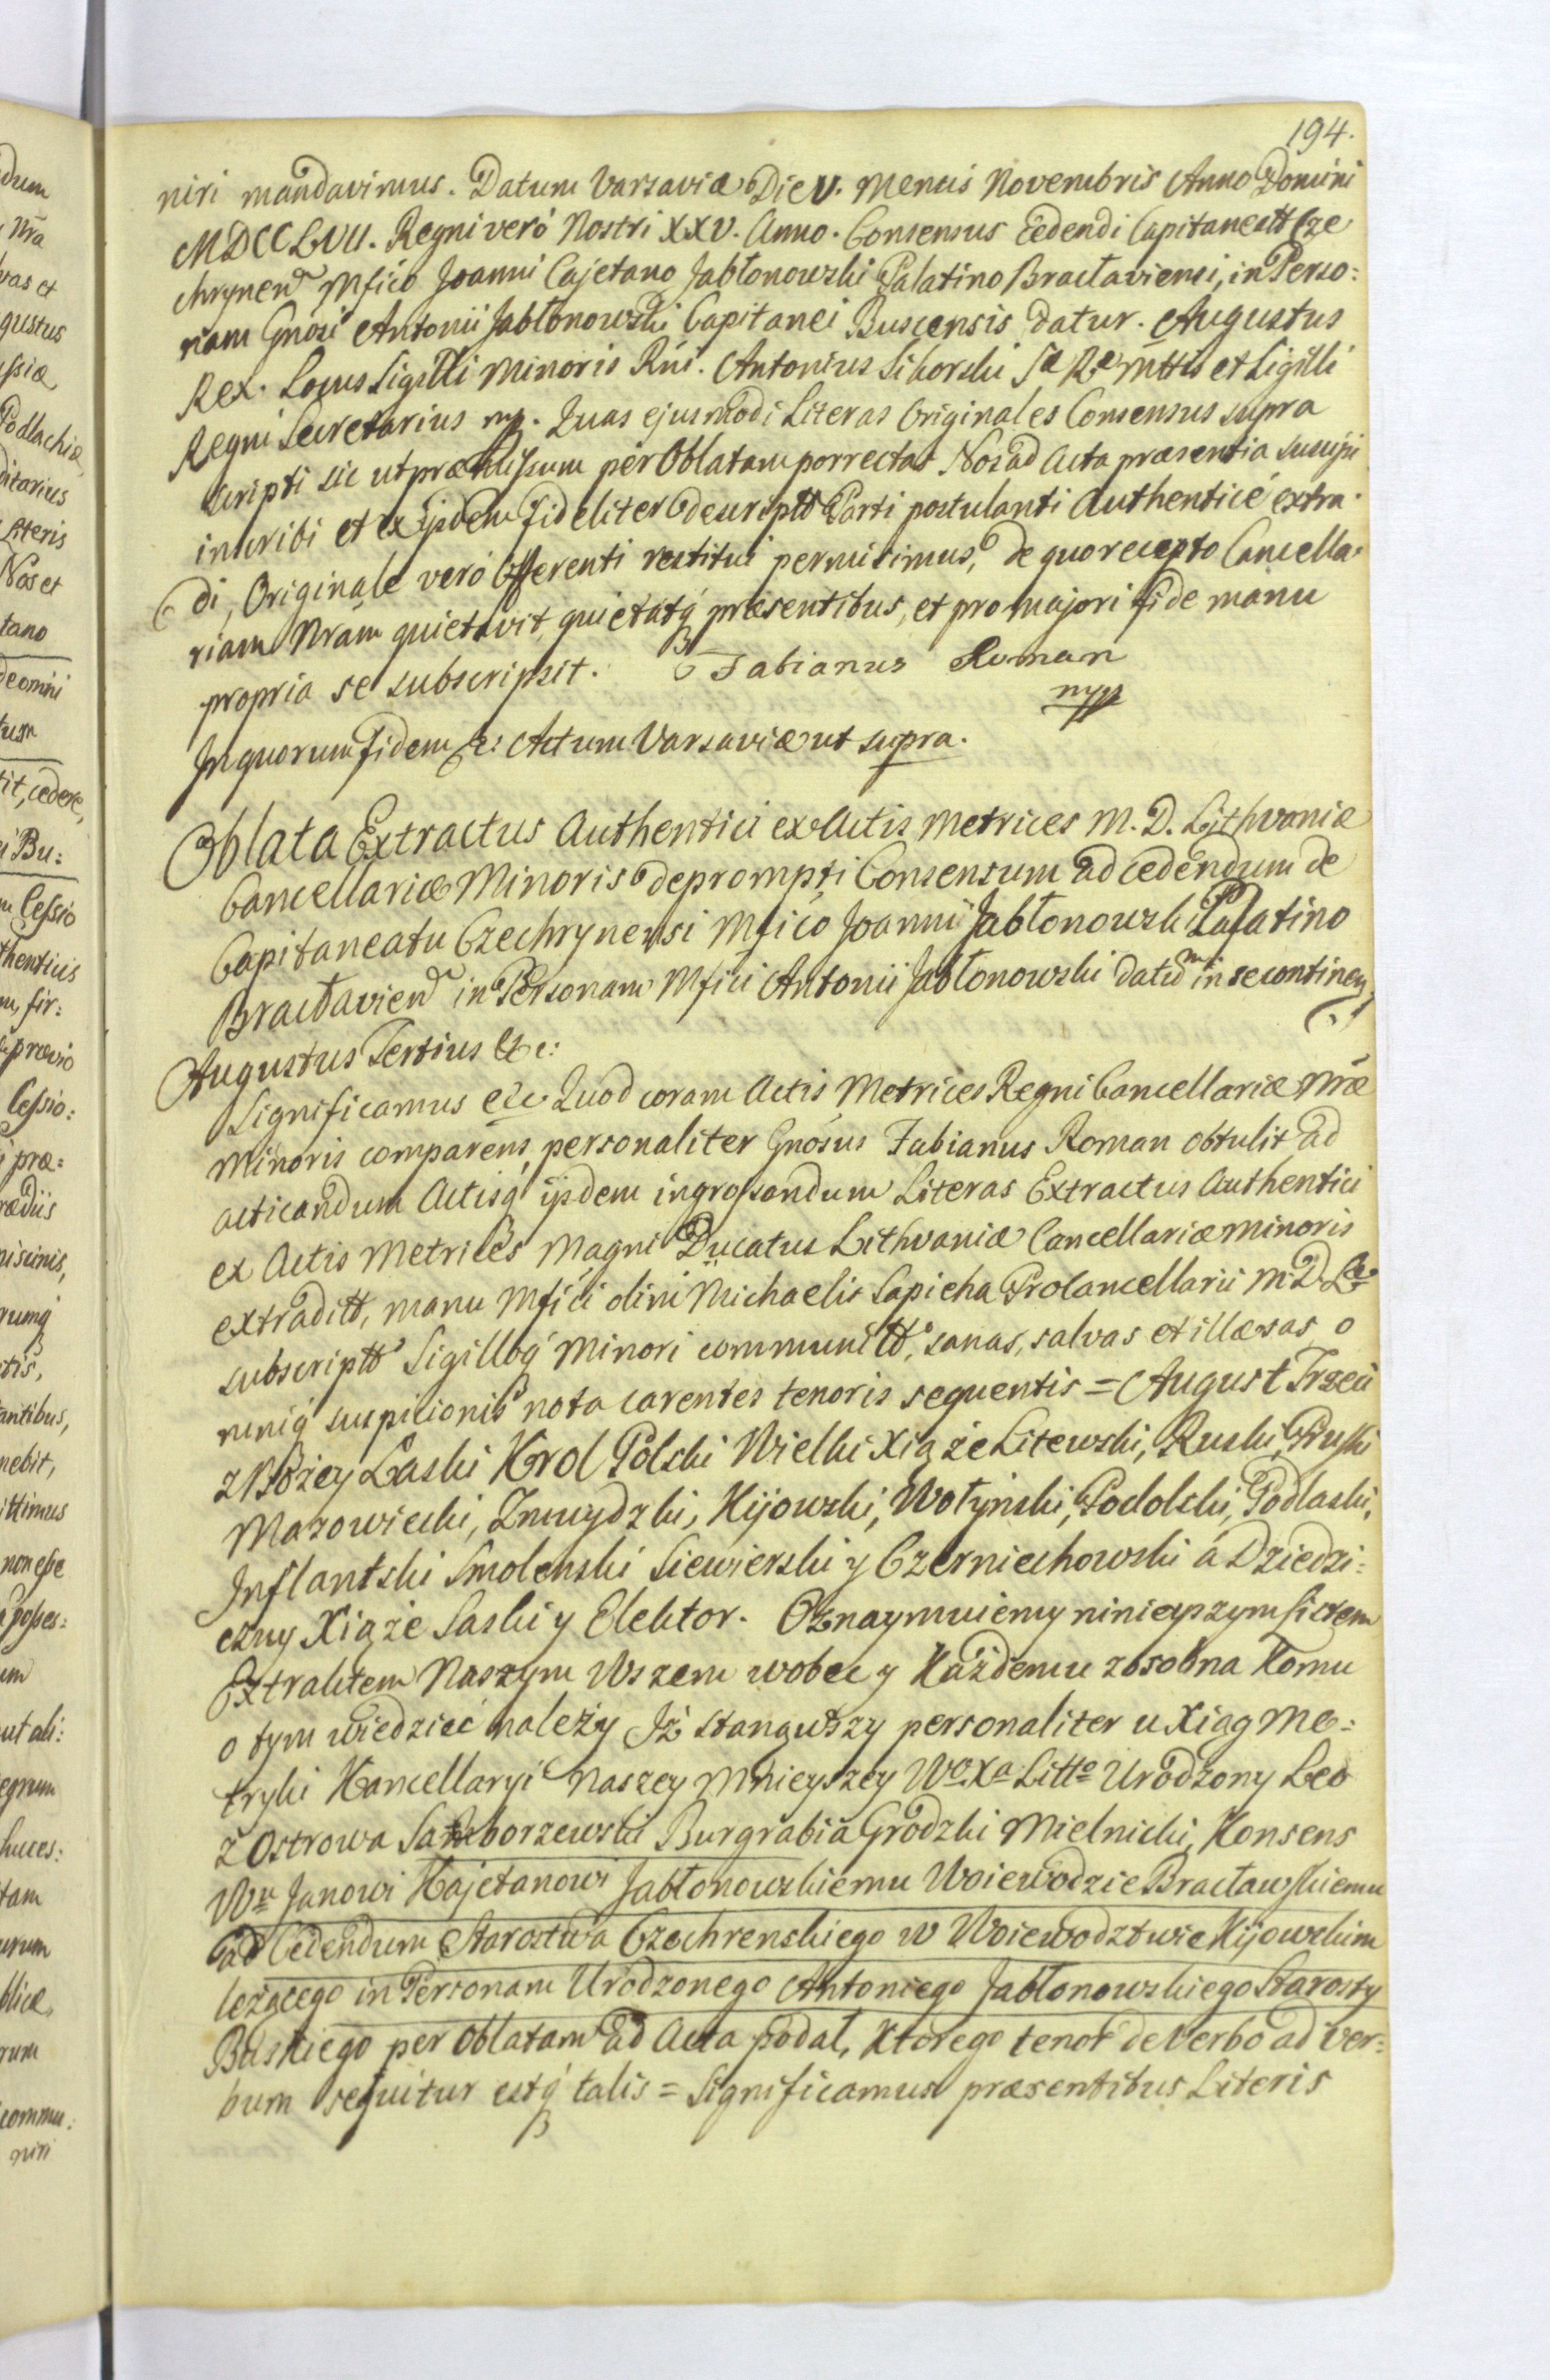 194.
niri mandavimus. Datum Varsaviæ Die V. Mensis Novembris Anno Domini
MDCCLVII. Regni verò Nostri XXV. Anno. Consensus Cedendi Capitaneatt Cze
chrynen Mfico Joanni Cajetano Jabłonowski Palatino Bracłaviensi, in Perso:
nam Gnosi Antonii Jabłonowski Capitanei Buscensis datur. Augustus
Rex. Locus Sigilli Minoris Rni. Antonius Sikorski Sæ Ræ Mttis et Sigilli
Regni Secretarius mp. Quas ejusmodi Literas Originales Consensus supra
scripti sic ut præmissum per Oblatam porrectas Nos ad Acta præsentia suscipi
inscribi et ex ijsdem fideliter descriptt Parti postulanti Authenticè extra
di, Originale verò Offerenti restitui permisimus, de quo recepto Cancella:
riam Nram quietavit, quietatq præsentibus, et pro majori fide manu
propria se subscripsit. Fabianus Roman
mpp
In quorum fidem &: Actum Varsaviæ ut supra.
Oblata Extractus Authentici ex Actis Metrices M. D. Lithvaniæ
Cancellariæ Minoris deprompti Consensum ad cedendum de
Capitaneatu Czechrynensi Mfico Joanni Jabłonowski Palatino
Bracłavien in Personam Mfici Antonii Jabłonowski datum in se continen
Augustus Tertius &c:
Significamus etc Quod coram Actis Metrices Regni Cancellariæ Nræ
Minoris comparens personaliter Gnosus Fabianus Roman obtulit ad
acticandum Actisq ijsdem ingrossandum Literas Extractus Authentici
ex Actis Metrices Magni Ducatus Lithvaniæ Cancellariæ Minoris
extraditt, manu Mfici olim Michaelis Sapieha Procancellarii M. D. L.
subscriptt Sigilloq Minori communitt, sanas, salvas et illæsas o
mniq suspicionis nota carentes tenoris sequentis = August Trzeci
z Bożey Łaski Krol Polski Wielki Xiąże Litewski, Ruski, Pruski
Mazowiecki, Zmuydzki, Kijowski, Wołynski, Podolski, Podlaski,
Inflantski Smolenski Siewierski y Czerniechowski a Dziedzi:
czny Xiąże Saski y Elektor. Oznaymuiemy ninieyszym sicrem
Extraktem Naszym Wszem wobec y Każdemu zosobna Komu
o tym wiedzieć należy Iż stanąwszy personaliter u Xiąg Me:
tryki Kancellaryi naszey Mnieyszey Wo Xa Litto Urodzony Leo
z Ostrowa Samborzewski Burgrabia Grodzki Mielnicki, Konsens
Wu Janowi Kajetanowi Jabłonowskiemu Woiewodzie Bracławskiemu
ad Cedendum Starostwa Czechrenskiego w Woiewodztwie Kijowskim
leżącego in Personam Urodzonego Antoniego Jabłonowskiego Starosty
Buskiego per Oblatam ad Acta podał, Ktorego tenor de Verbo ad ver:
bum sequitur estq talis = Significamus præsentibus Literis